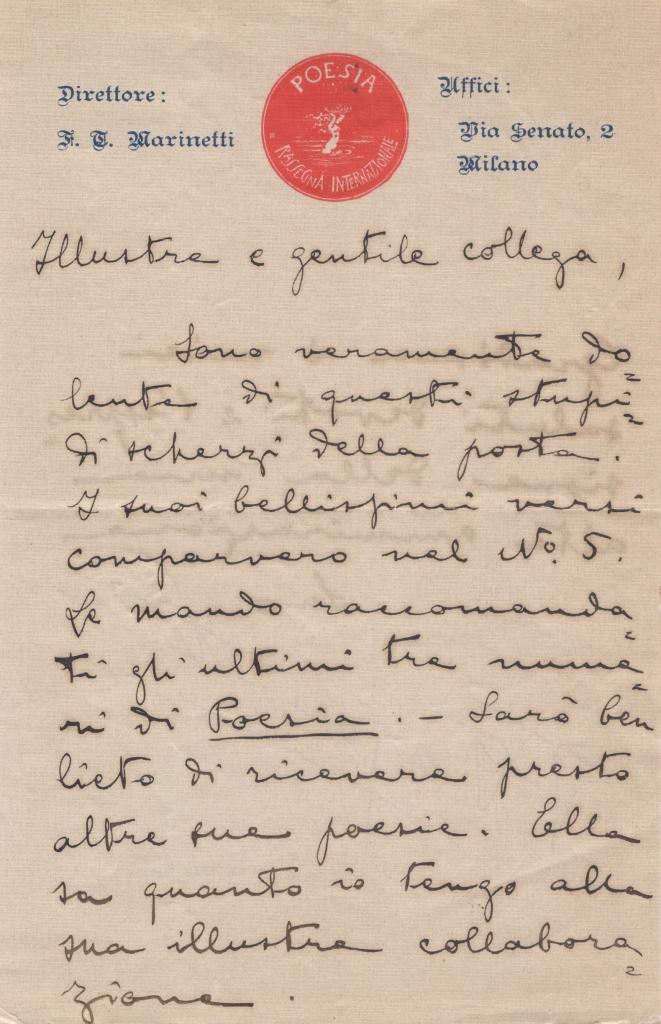 Direttore:
F. T. Marinetti
POESIA
RASSEGNA INTERNAZIONALE
Uffici:
Via Senato, 2
Milano
Illustre e gentile collega,
Sono veramente do=
lente di questi stupi=
di scherzi della posta.
I suoi bellissimi versi
comparvero nel No. 5.
Le mando raccomanda=
ti gli ultimi tre nume=
ri di Poesia. — Sarò ben
lieto di ricevere presto
altre sue poesie. Ella
sa quanto io tengo alla
sua illustre collabora=
zione.